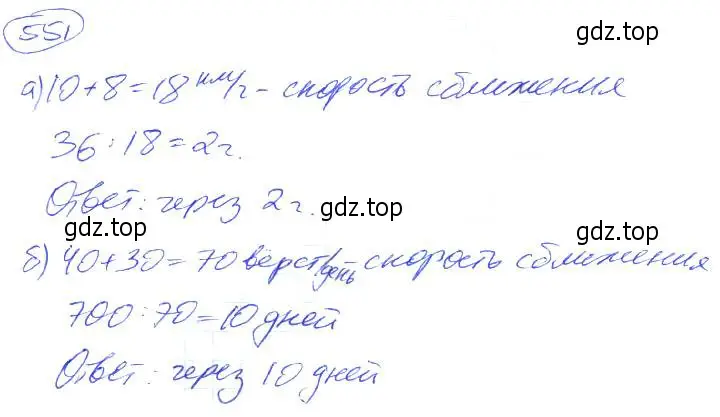 551
gdz.top
а) 10 + 8 = 18 км/ч - скорость сближения
36 : 18 = 2 ч.
Ответ: через 2 ч.
gdz.top
gdz.top
б) 40 + 30 = 70 верст/день скорость сближения
700 : 70 = 10 дней
gdz.top
Ответ: через 10 дней